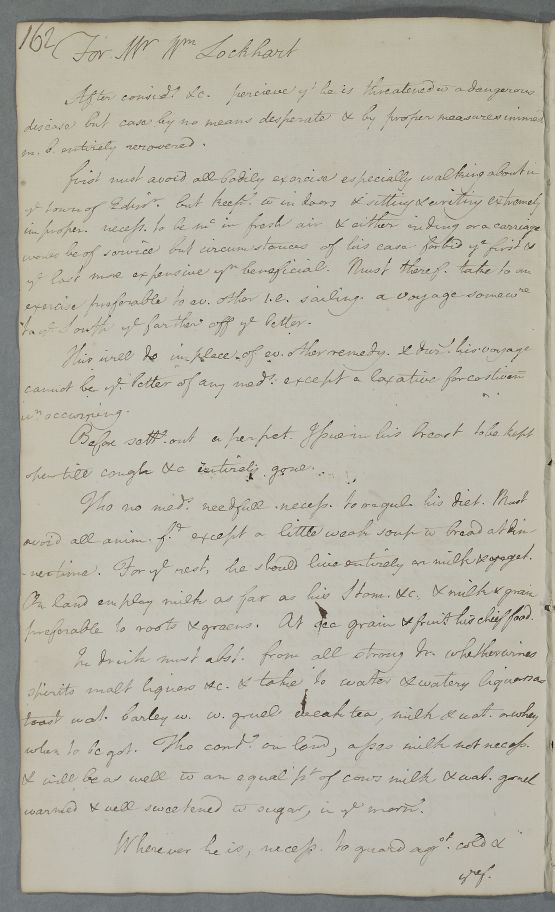 162
For Mr Wm Lockhart
After considn. &c. percieve yt he is threatened w a dangerous
disease but case by no means desperate & by proper measures immed
m. b. entirely recovered.
First must avoid all bodily exercise especially walking about in
ye town of Edinr. but keepg. w in doors & sitting & writing extremely
improper. necess. to be mc in fresh air & either riding or a carriage
would be of service but circumstances of his case forbid ye first &
ye last more expensive yn beneficial. Must theref. take to an
exercise preferable to ev. other i.e. sailing. a voyage somewre
to ye South ye farther off ye better.
This will do in place of ev. other remedy. & durg. his voyage
cannot be ye better of any medn. except a laxative for costiven
wn occurring.
Before settg. out a perpet. Issue in his breast to be kept
open till cough &c entirely gone.
Tho no medn. needfull necess. to regul. his diet. Must
avoid all anim. fd. except a little weak soup w bread at din
-ner time. For ye rest, he should live entirely on milk & veget.
On land employ milk as far as his Stom. &c. & milk & grain
preferable to roots & greens. At sea grain & fruits his chief food.
In drink must abst. from all strong dr. whether wines
spirits malt liquors &c. & take to water & watery liquors as
toast wat. barley w. w. gruel weak tea, milk & wat. or whey
when to be got. Tho contd. on land, asses milk not necess.
& will be as well to an equal pt of cows milk & wat. gruel
warmed & well sweetened w sugar, in ye morng.
Wherever he is, necess. to guard agst. cold &